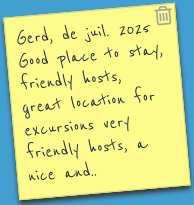 Gerd, de juil. 2025
Good place to stay,
friendly hosts,
great location for
excursions very
friendly hosts, a
nice and..